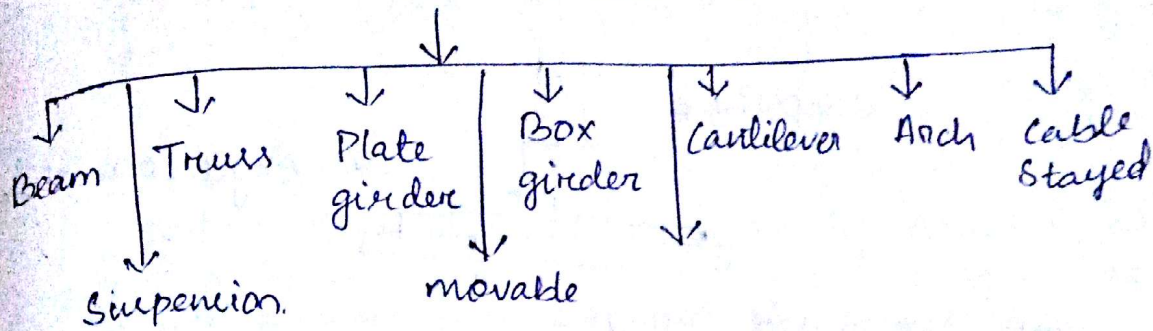 Beam
Truss
Plate
girder
Box
girder
Cantilever
Arch
Cable
Stayed
Suspension.
movable